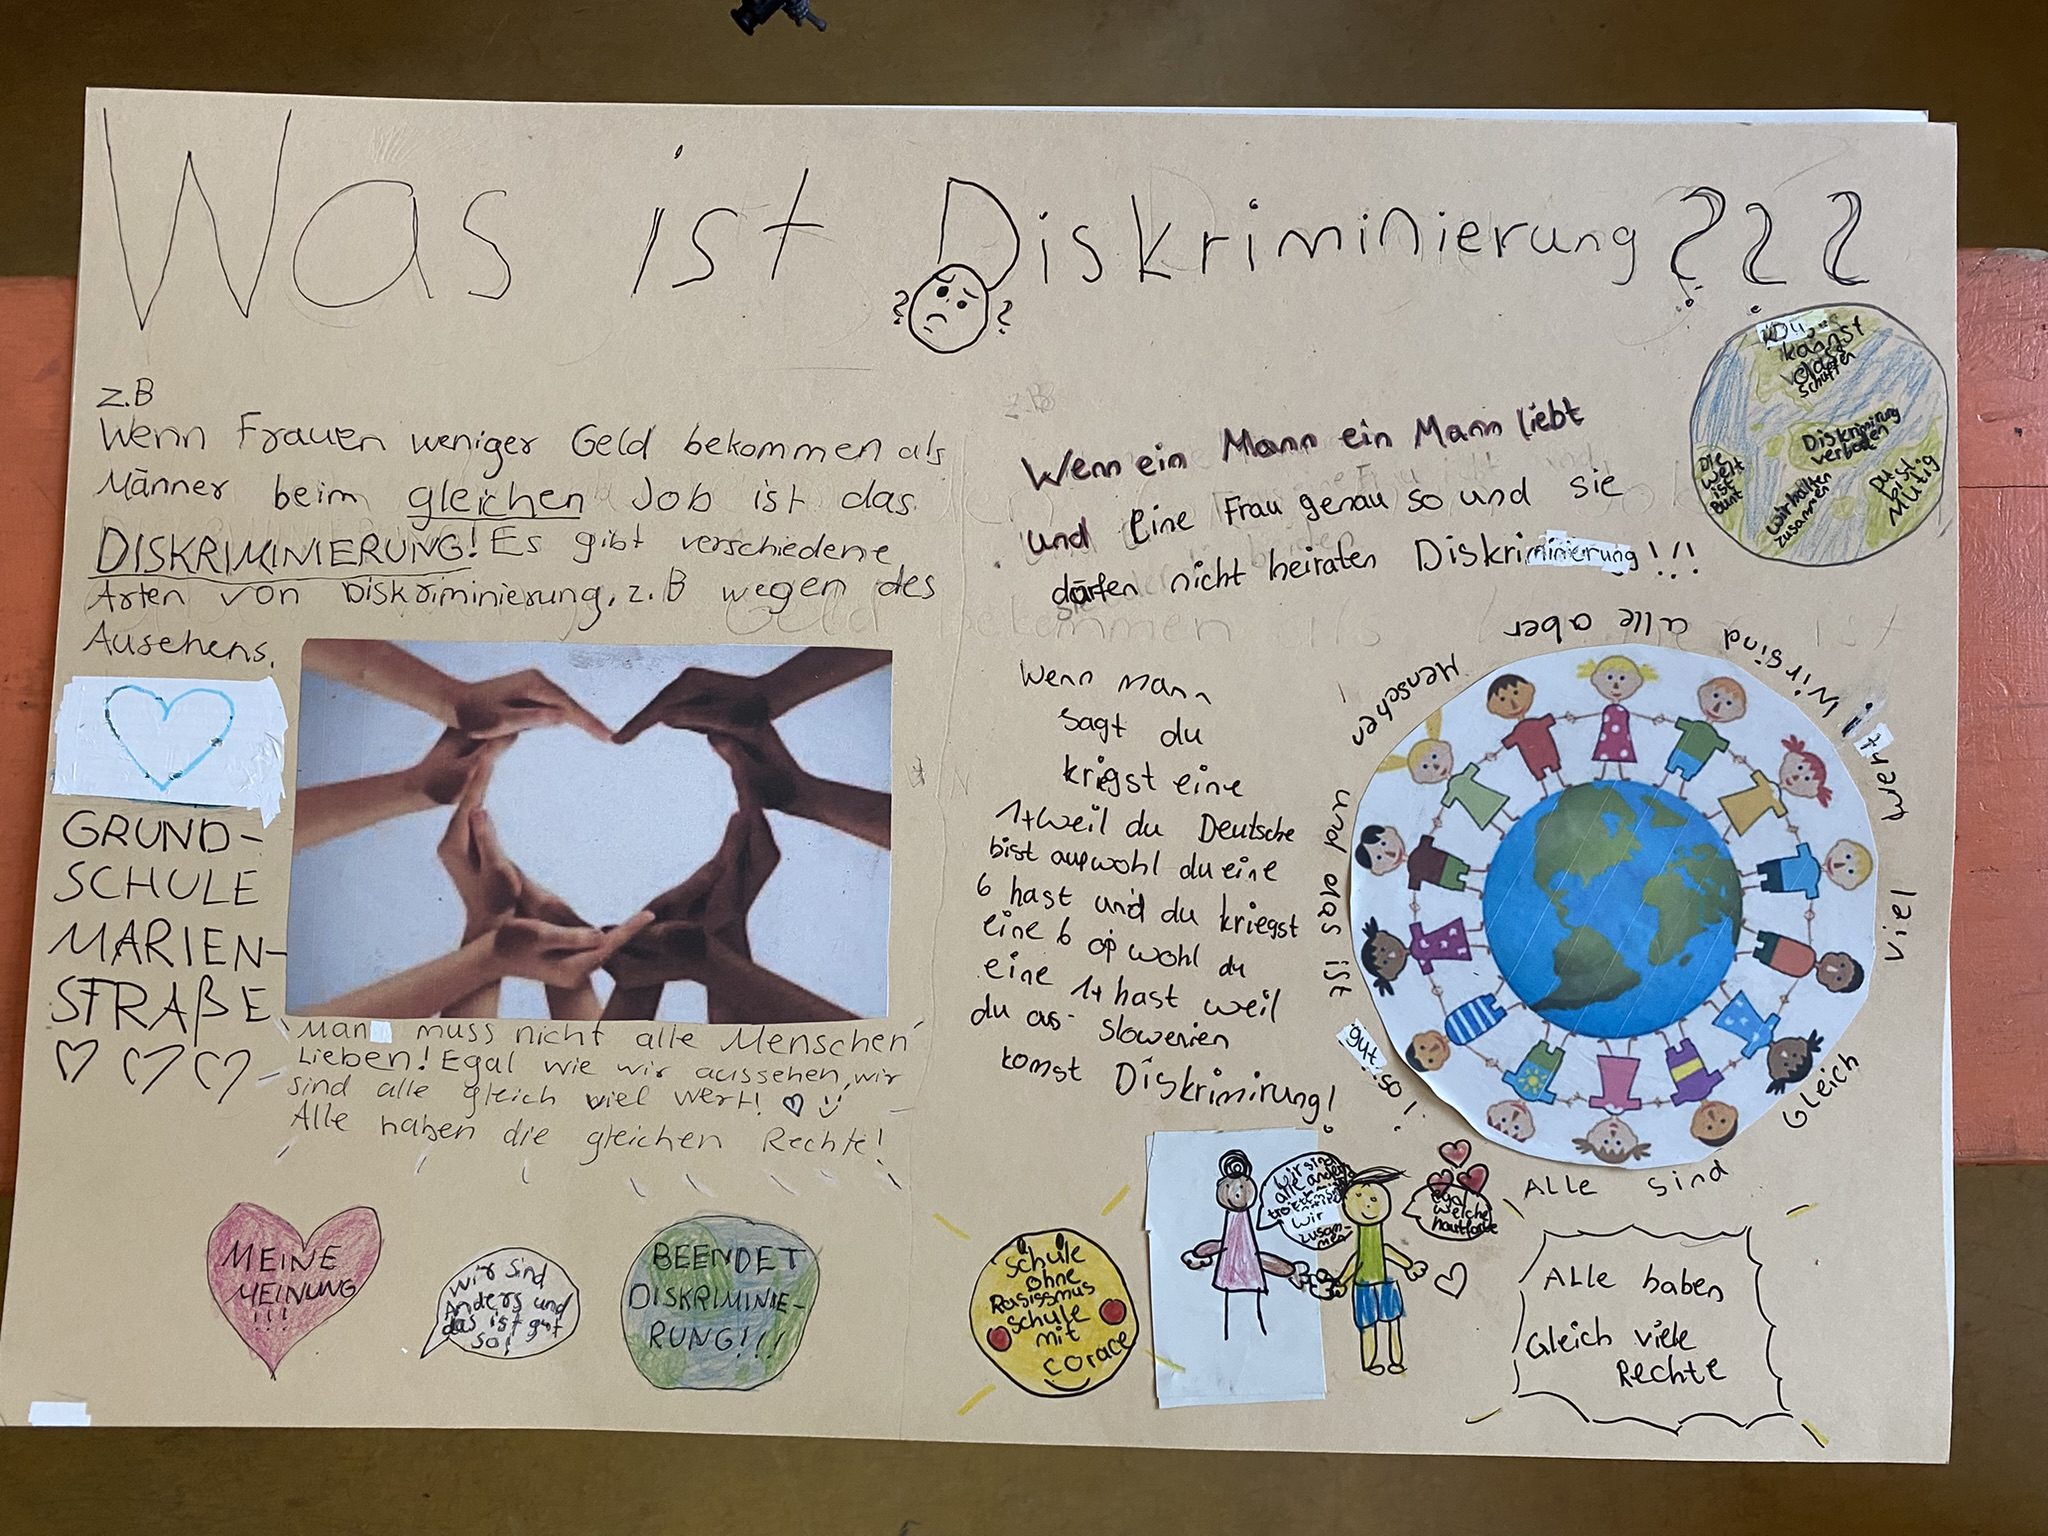 Was ist Diskriminierung???
? ?
z.B
Wenn Frauen weniger Geld bekommen als
Männer beim gleichen Job ist das
DISKRIMINIERUNG! Es gibt verschiedene
Arten von Diskriminierung, z.B wegen des
Ausehens.
GRUND-
SCHULE
MARIEN-
STRAßE
Man muss nicht alle Menschen
Lieben! Egal wie wir aussehen, wir
sind alle gleich viel wert!
Alle haben die gleichen Rechte!
MEINE
MEINUNG
!!!
Wir sind
Anders und
das ist gut
so!
BEENDET
DISKRIMINIE-
RUNG!!!
z.B
Wenn ein Mann ein Mann liebt
und Eine Frau genau so und sie
dürfen nicht heiraten Diskriminierung!!!
Wenn Mann
sagt du
krigst eine
1+ weil du Deutsche
bist aupwohl du eine
6 hast und du kriegst
eine 6 opwohl du
eine 1+ hast weil
du as slowenien
komst Diskrimirung!
Du
kannst
das
schaffen
Diskrimirung
verboten
Die
Welt
ist
Bunt
wir halten
zusammen
Du
bist
Mutig
Alle sind
Gleich
viel
wert
Wir sind alle aber
Menschen
und das ist
gut so!
Schule
ohne
Rasissmus
Schule
mit
corace
wir sind
alle anders
trotzdem
wir
zusam-
men
egal
welche
hautfarbe
Alle haben
Gleich viele
Rechte